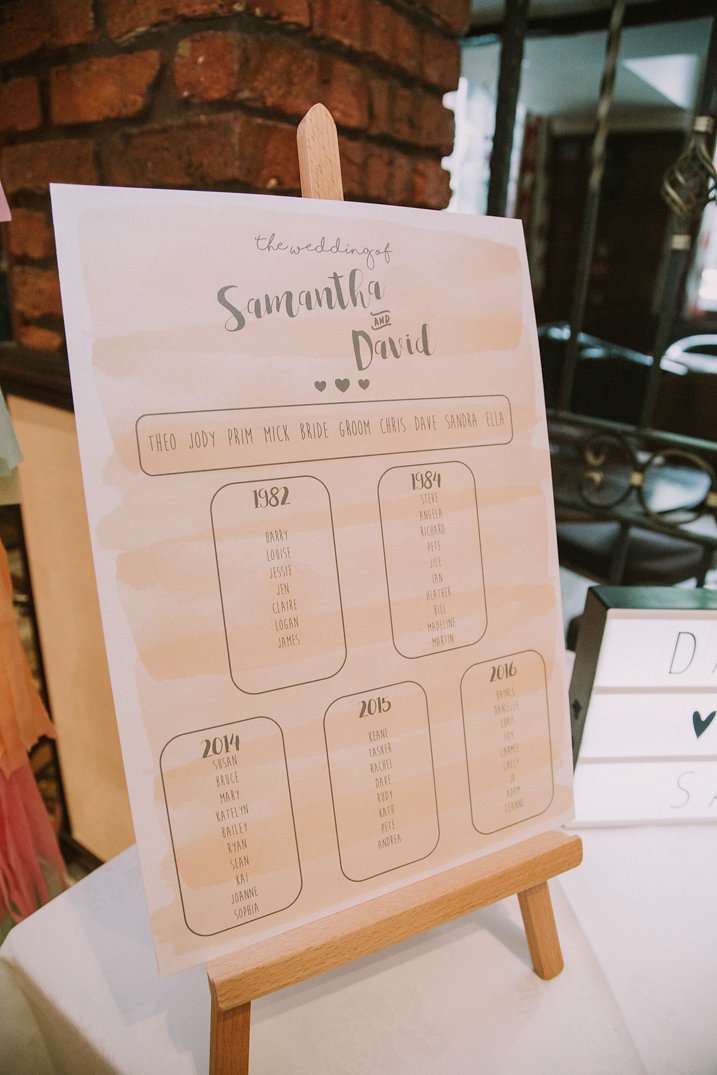 the wedding of
Samantha
AND
David
THEO JODY PRIM MICK BRIDE GROOM CHRIS DAVE SANDRA ELLA
1982
BARRY
LOUISE
JESSIE
JEN
CLAIRE
LOGAN
JAMES
1984
STEVE
ANGELA
RICHARD
PETE
IAN
HEATHER
BILL
MADELINE
MARTIN
2014
SUSAN
BRUCE
MARY
KATELYN
BAILEY
RYAN
SEAN
KAI
JOANNE
SOPHIA
2015
KEANE
TASKER
RACHEL
DAVE
RUDY
KATE
PETE
ANDREA
2016
DANIELLE
CHRIS
SALLY
JO
ADAM
D
S